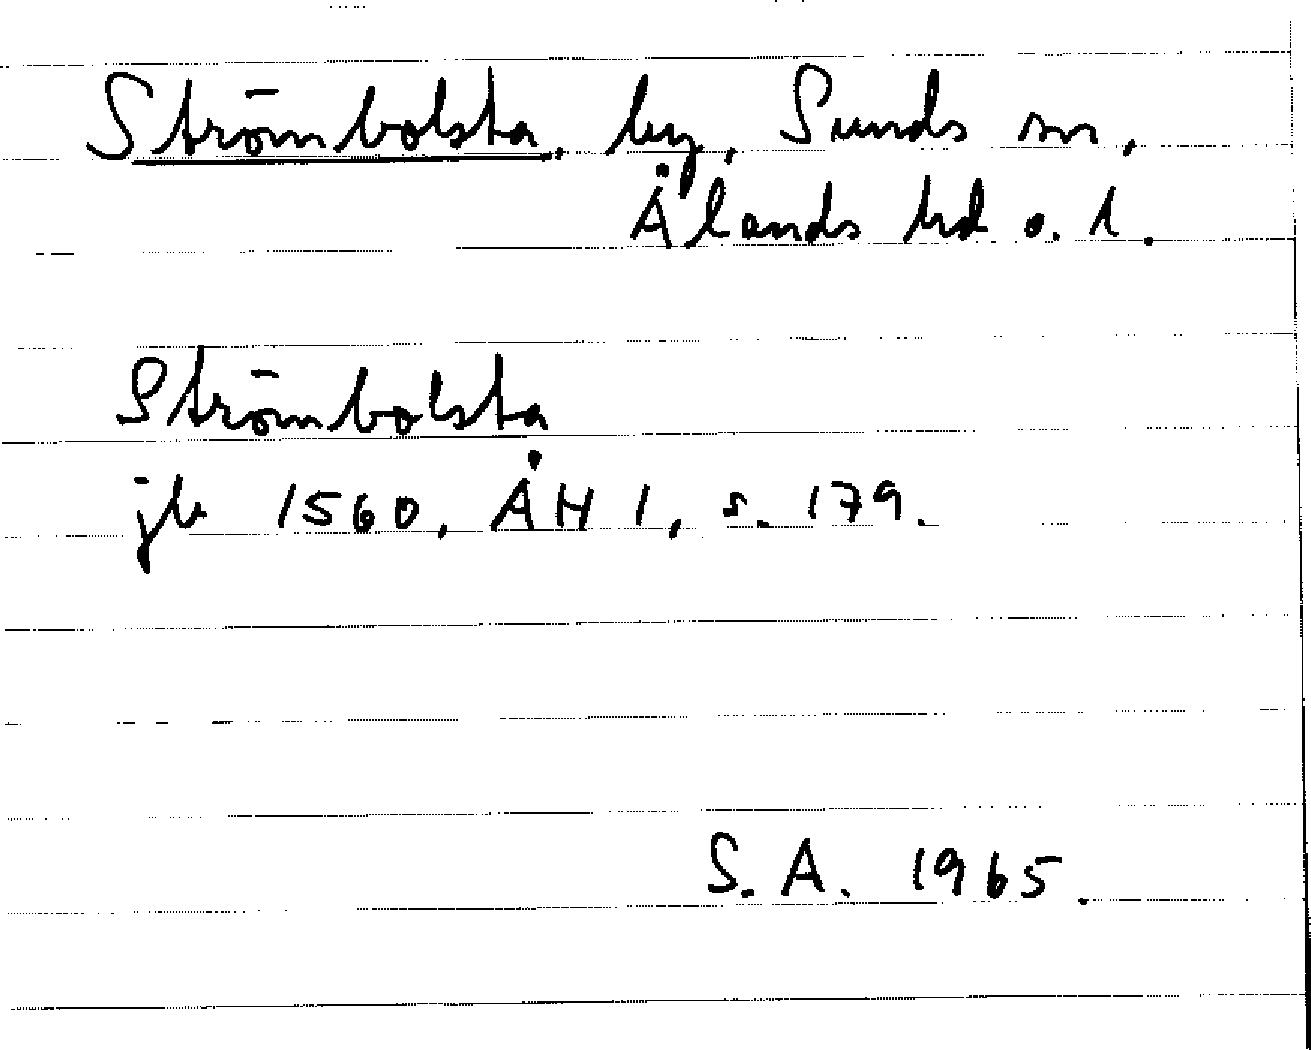 Strömbolsta, by, Sunds sn,
Ålands hd o. l.
Strömbolsta
jb 1560, ÅH 1, s. 179.
S. A. 1965.